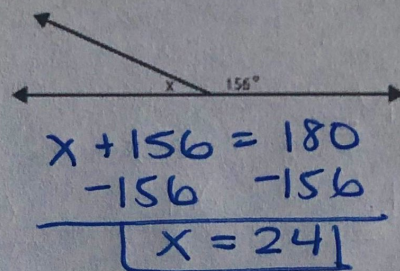 x 156°
x + 156 = 180
-156 -156
x = 24